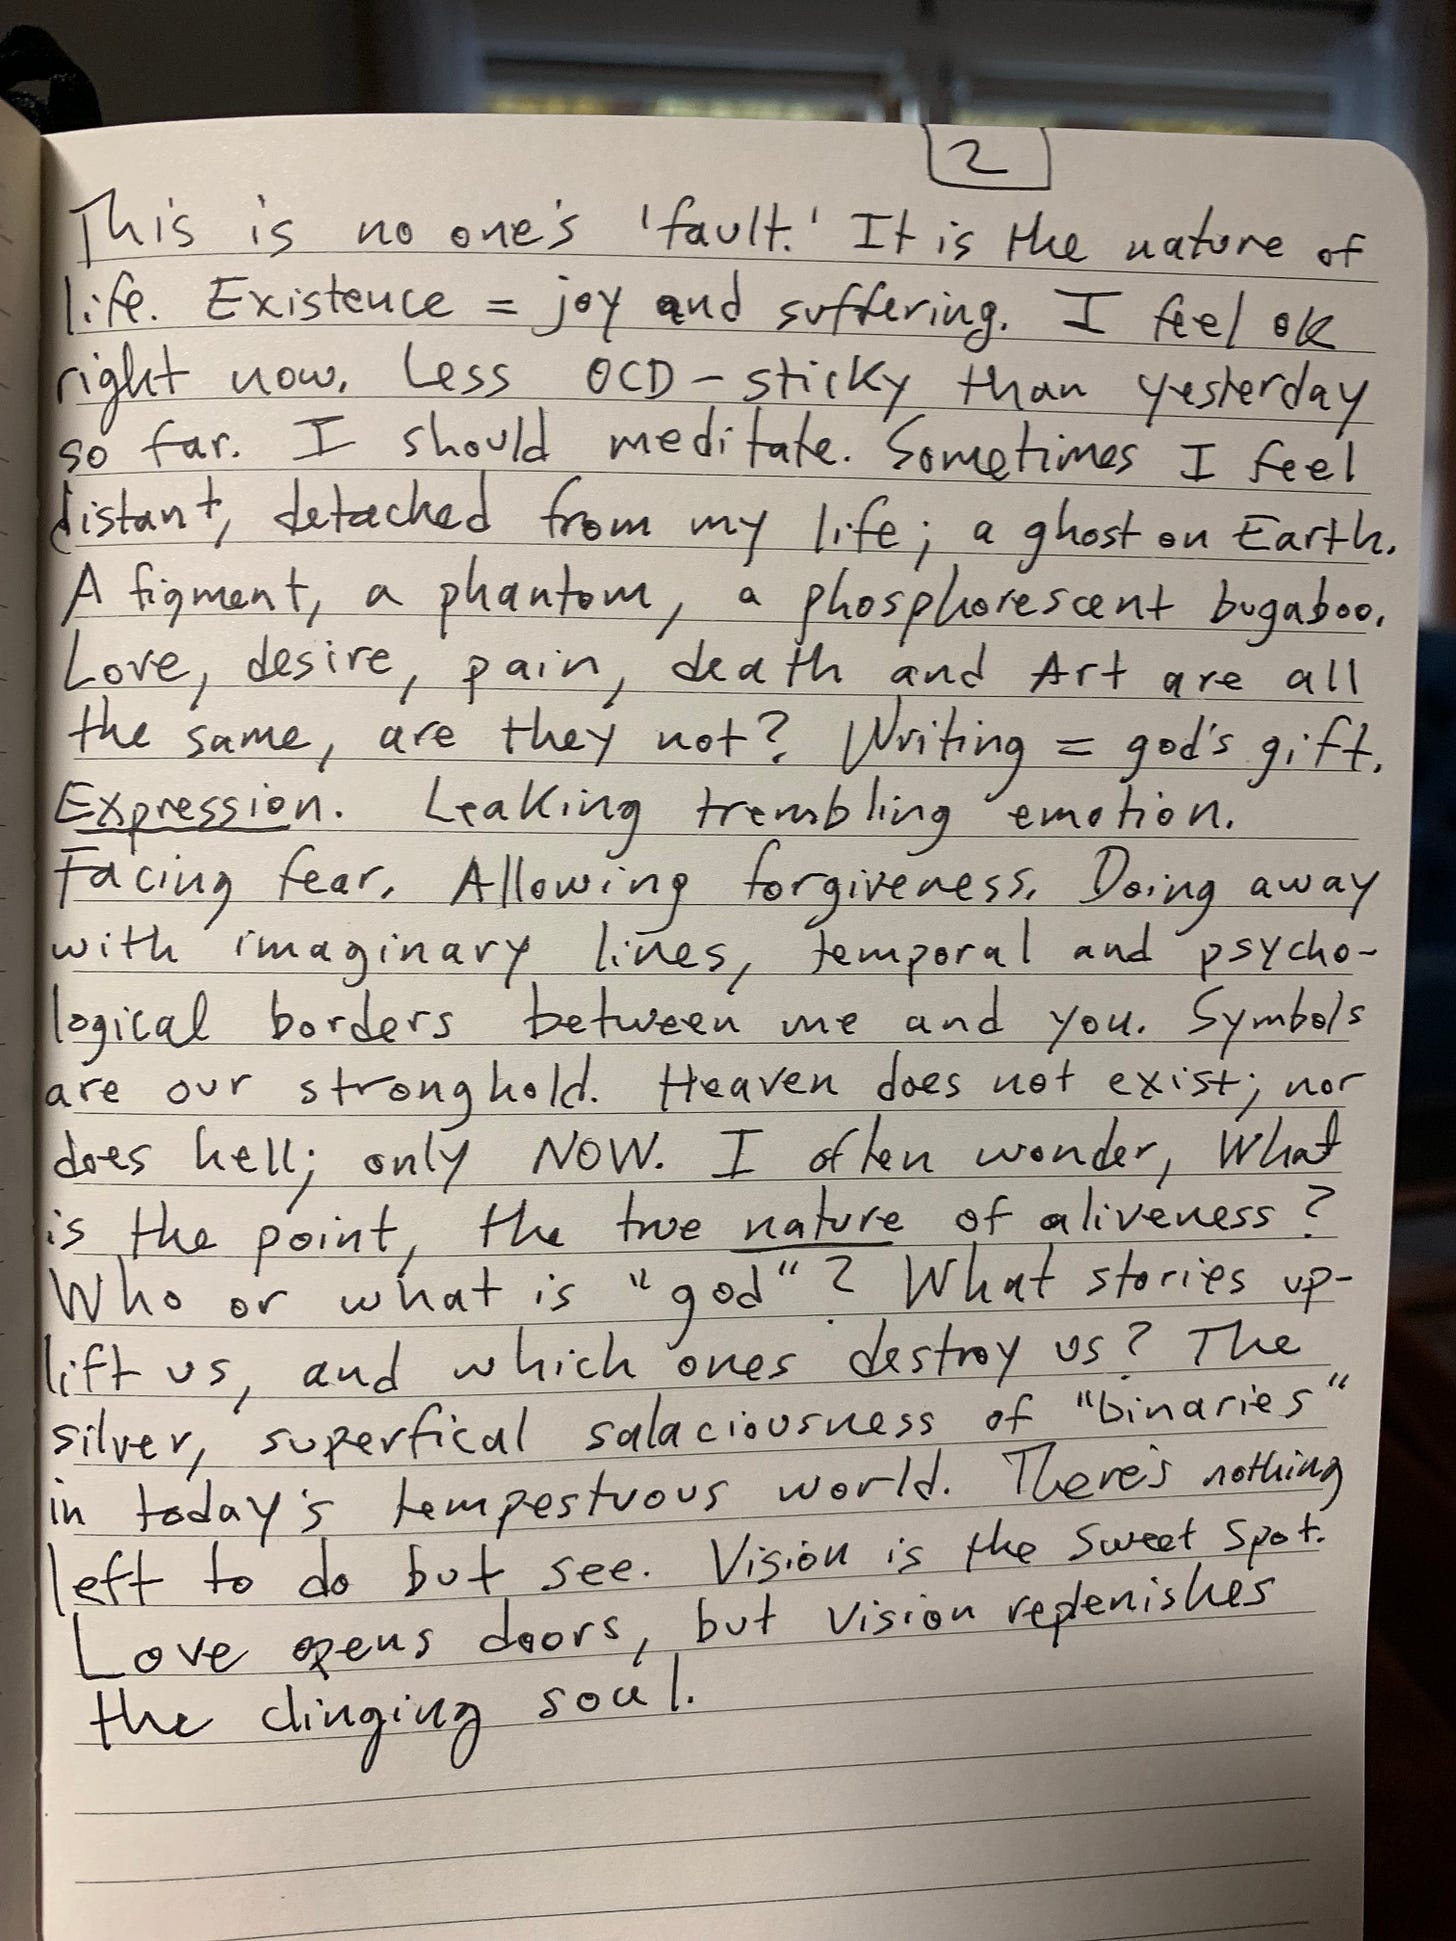 2
This is no one's 'fault.' It is the nature of
life. Existence = joy and suffering. I feel ok
right now. Less OCD-sticky than yesterday
so far. I should meditate. Sometimes I feel
distant, detached from my life; a ghost on Earth.
A figment, a phantom, a phosphorescent bugaboo.
Love, desire, pain, death and Art are all
the same, are they not? Writing = god's gift.
Expression. Leaking trembling emotion.
Facing fear. Allowing forgiveness. Doing away
with imaginary lines, temporal and psycho-
logical borders between me and you. Symbols
are our stronghold. Heaven does not exist; nor
does hell; only NOW. I often wonder, What
is the point, the true nature of aliveness?
Who or what is "god"? What stories up-
lift us, and which ones destroy us? The
silver, superfical salaciousness of "binaries"
in today's tempestuous world. There's nothing
left to do but see. Vision is the Sweet Spot.
Love opens doors, but vision replenishes
the clinging soul.